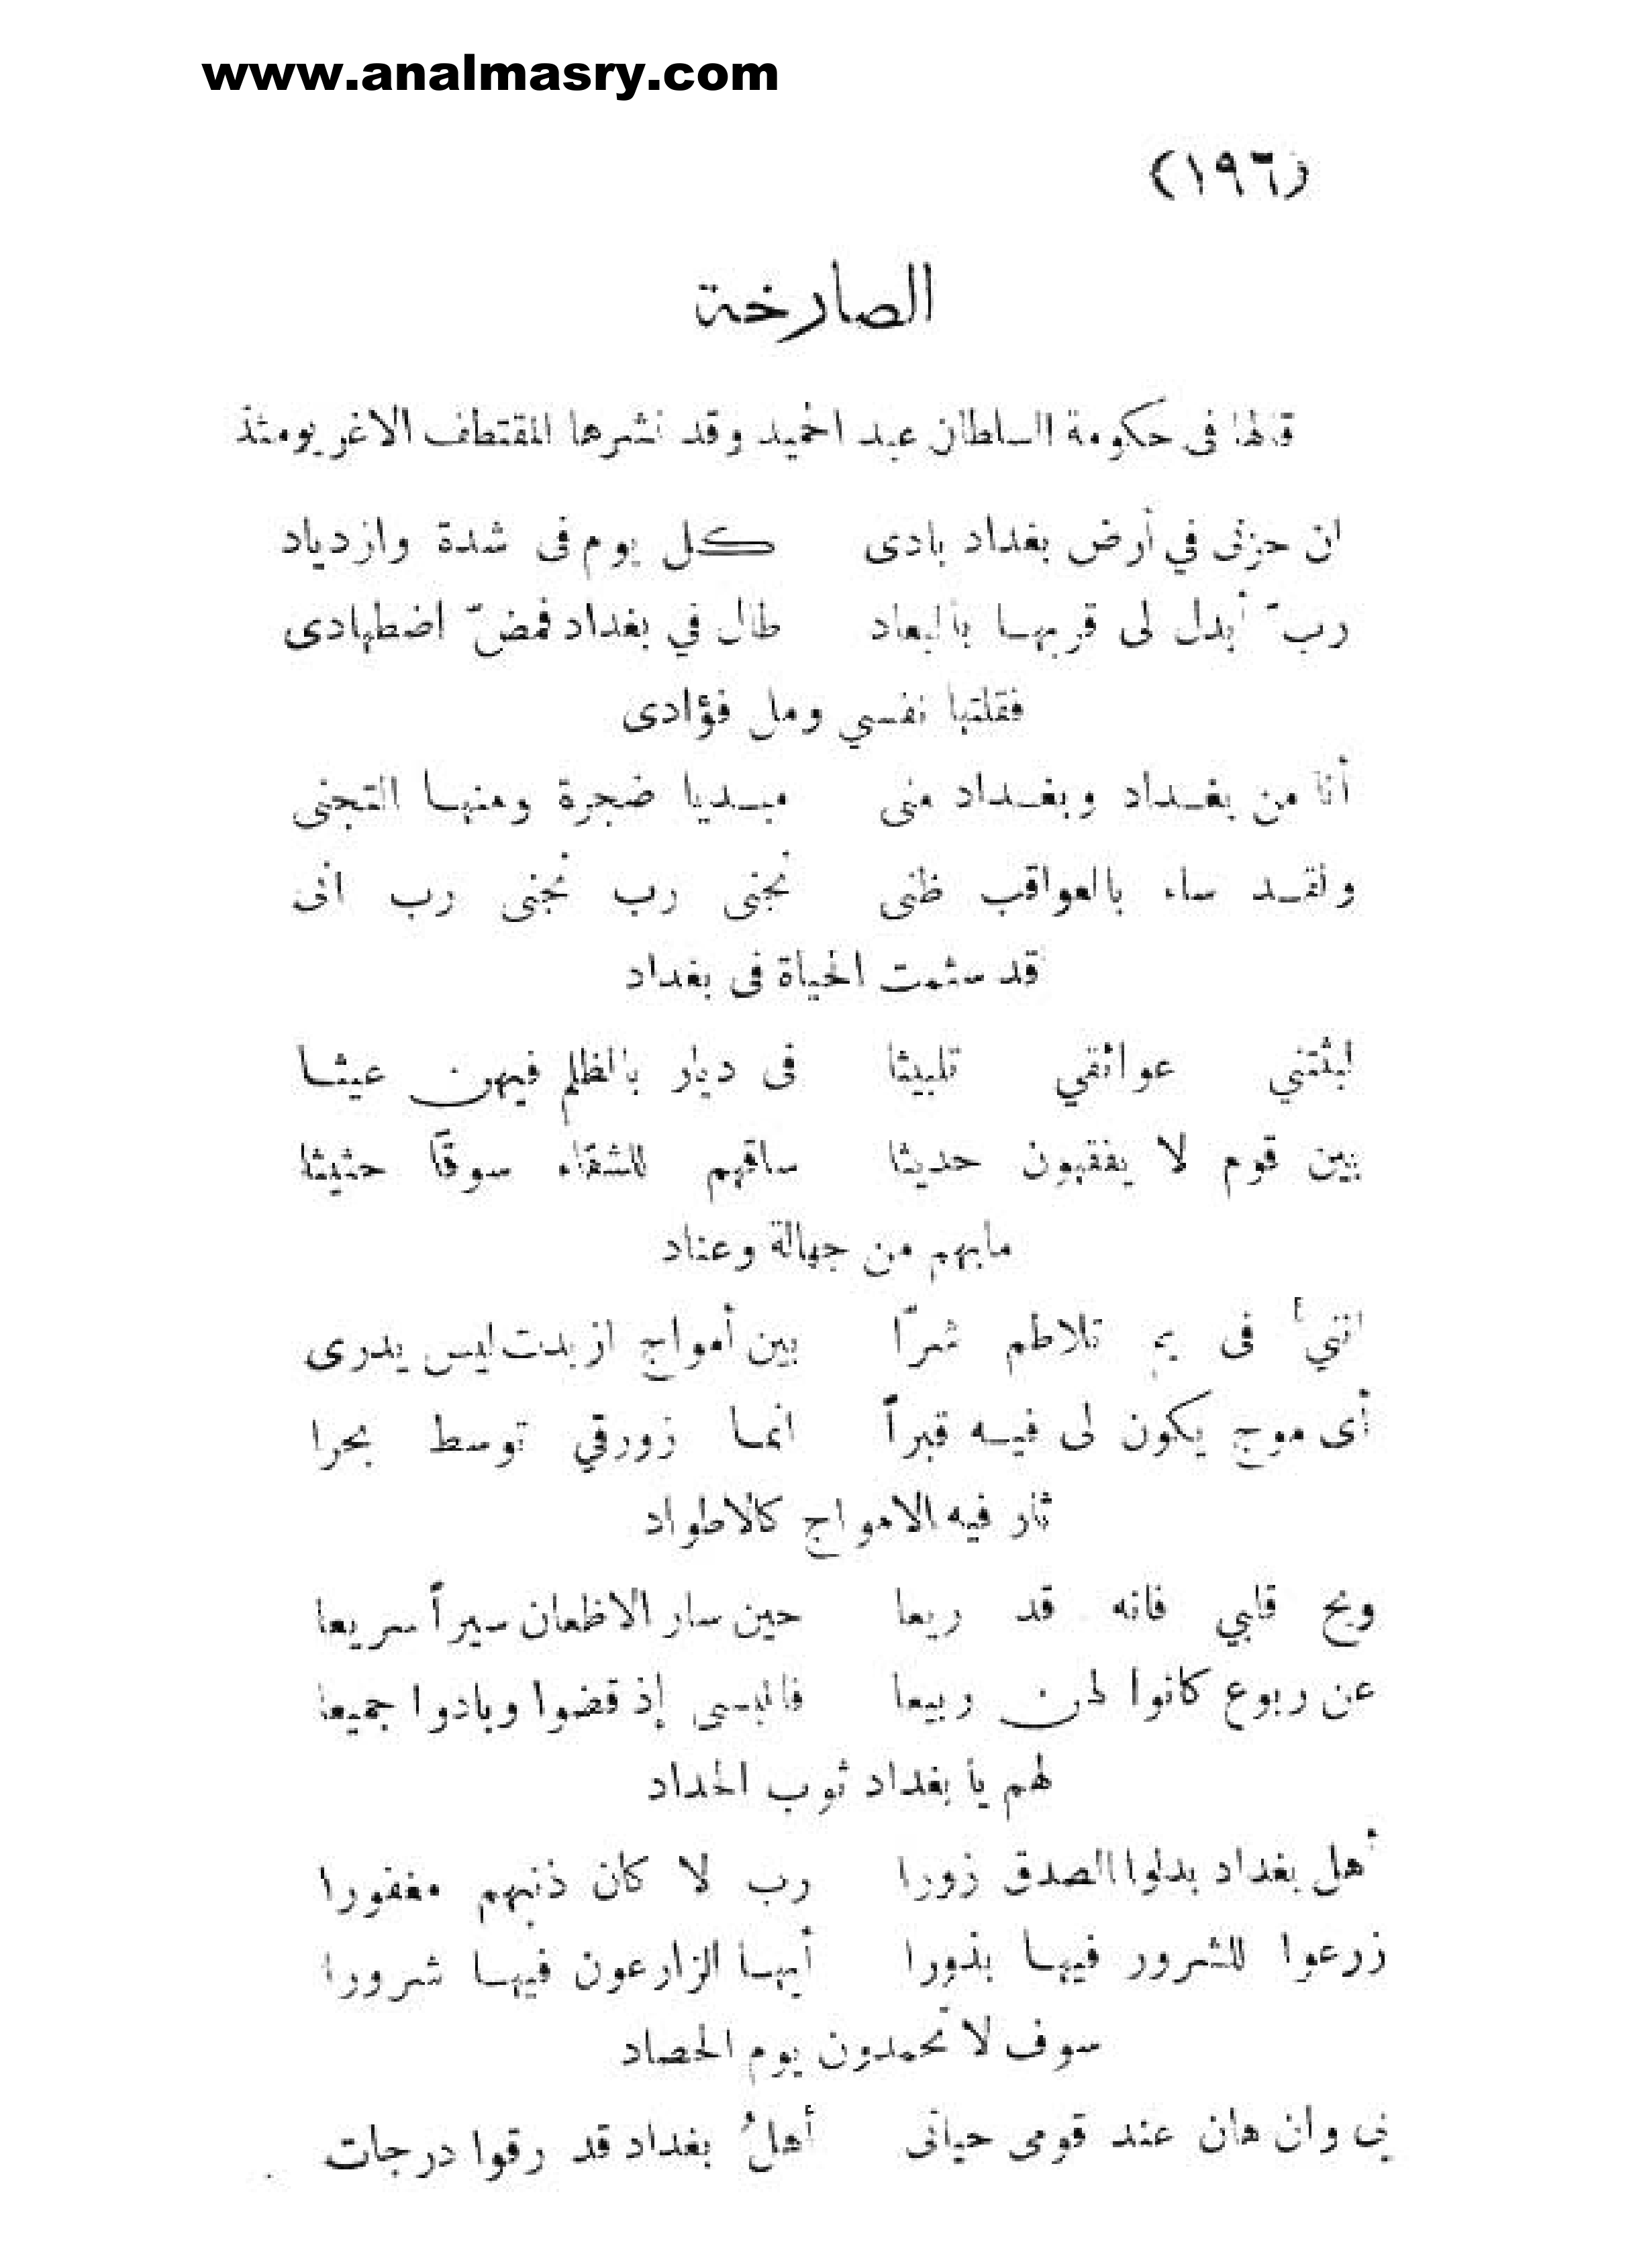 www.analmasry.com
(١٩٦)
الصارخة
قالها فى حكومة السلطان عبد الحميد وقد نشرها المقتطف الاغر يومئذ
ان حزنى في أرض بغداد بادى كل يوم فى شدة وازدياد
ربّ أبدل لى قربها بالبعاد طال في بغداد فمضّ اضطهادى
فقلتها نفسي ومل فؤادى
أنا من بغداد وبغداد منى مبديا ضجرة ومنها التجنى
ولقد ساء بالعواقب ظنى نجنى رب نجنى رب انى
قد سئمت الحياة فى بغداد
لبثتني عوائقي تلبيثا فى ديار بالظلم فيهن عيثا
بين قوم لا يفقهون حديثا ساقهم للشقاء سوقاً حثيثا
مابهم من جهالة وعناد
انني فى يم تلاطم شرّا بين أمواج ازبدت ليس يدرى
أى موج يكون لى فيه قبراً انما زورقي توسط بحرا
ثار فيه الامواج كالاطواد
ويح قلبي فانه قد ريعا حين سار الاظعان سيراً سريعا
عن ربوع كانوا لهن ربيعا فالبسى إذ قضوا وبادوا جميعا
لهم يا بغداد ثوب الحداد
أهل بغداد بدلوا الصدق زورا رب لا كان ذنبهم مغفورا
زرعوا للشرور فيها بذورا أيها الزارعون فيها شرورا
سوف لا تحمدون يوم الحصاد
بي وان هان عند قومى حياتى أهلُ بغداد قد رقوا درجات